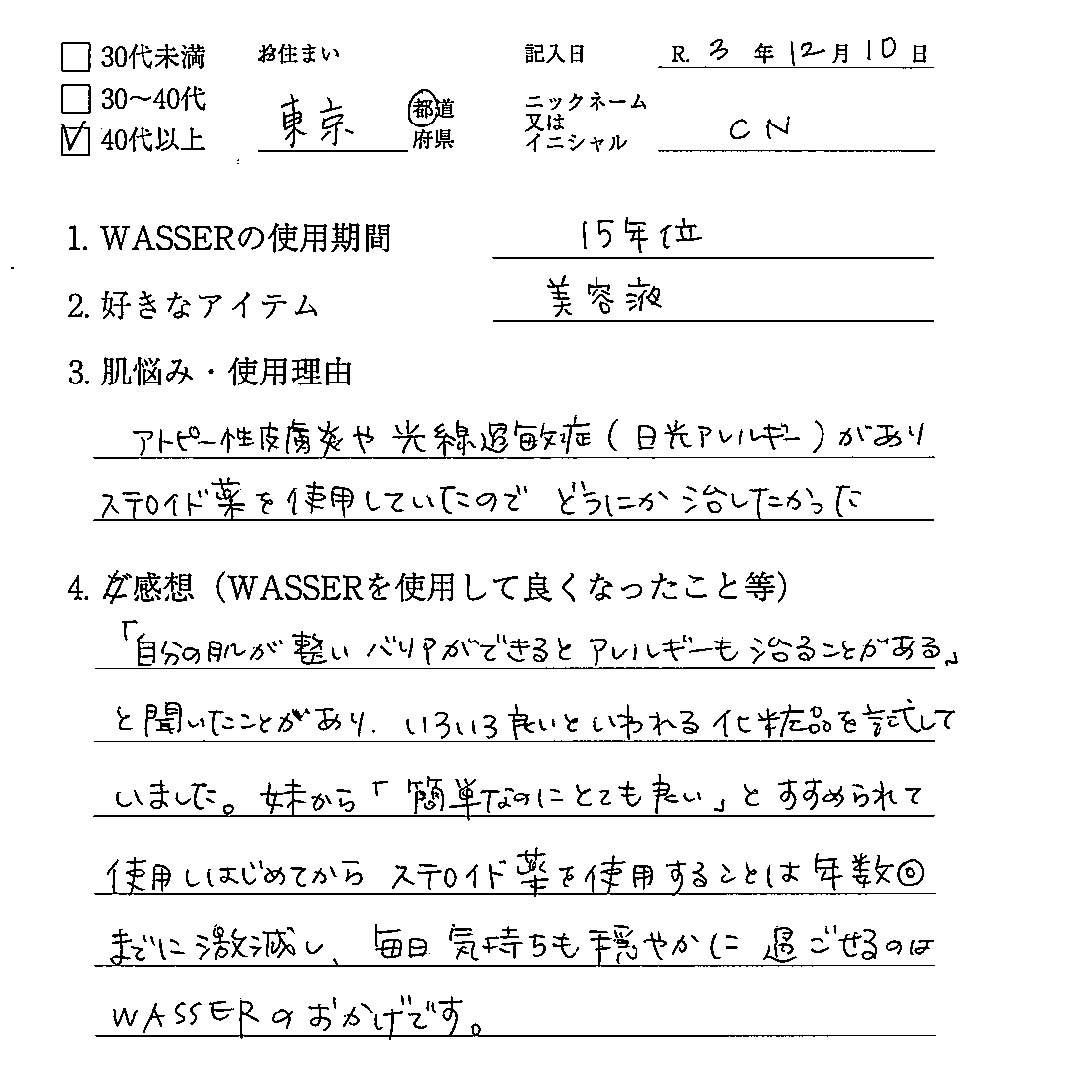 □ 30代未満 お住まい 記入日 R. 3 年 12 月 10 日
□ 30～40代 東京 都道府県 ニックネーム又はイニシャル CN
☑ 40代以上
1. WASSERの使用期間 15年位
2. 好きなアイテム 美容液
3. 肌悩み・使用理由
アトピー性皮膚炎や 光線過敏症(日光アレルギー)があり
ステロイド薬を使用していたので どうにか 治したかった
4. ご感想（WASSERを使用して良くなったこと等）
「自分の肌が整い バリアができると アレルギーも治ることがある」
と聞いたことがあり、いろいろ良いといわれる化粧品を試して
いました。妹から「簡単なのにとても良い」と すすめられて
使用しはじめてから ステロイド薬を使用することは 年数回
までに激減し、毎日 気持ちも穏やかに 過ごせるのは
WASSERのおかげです。